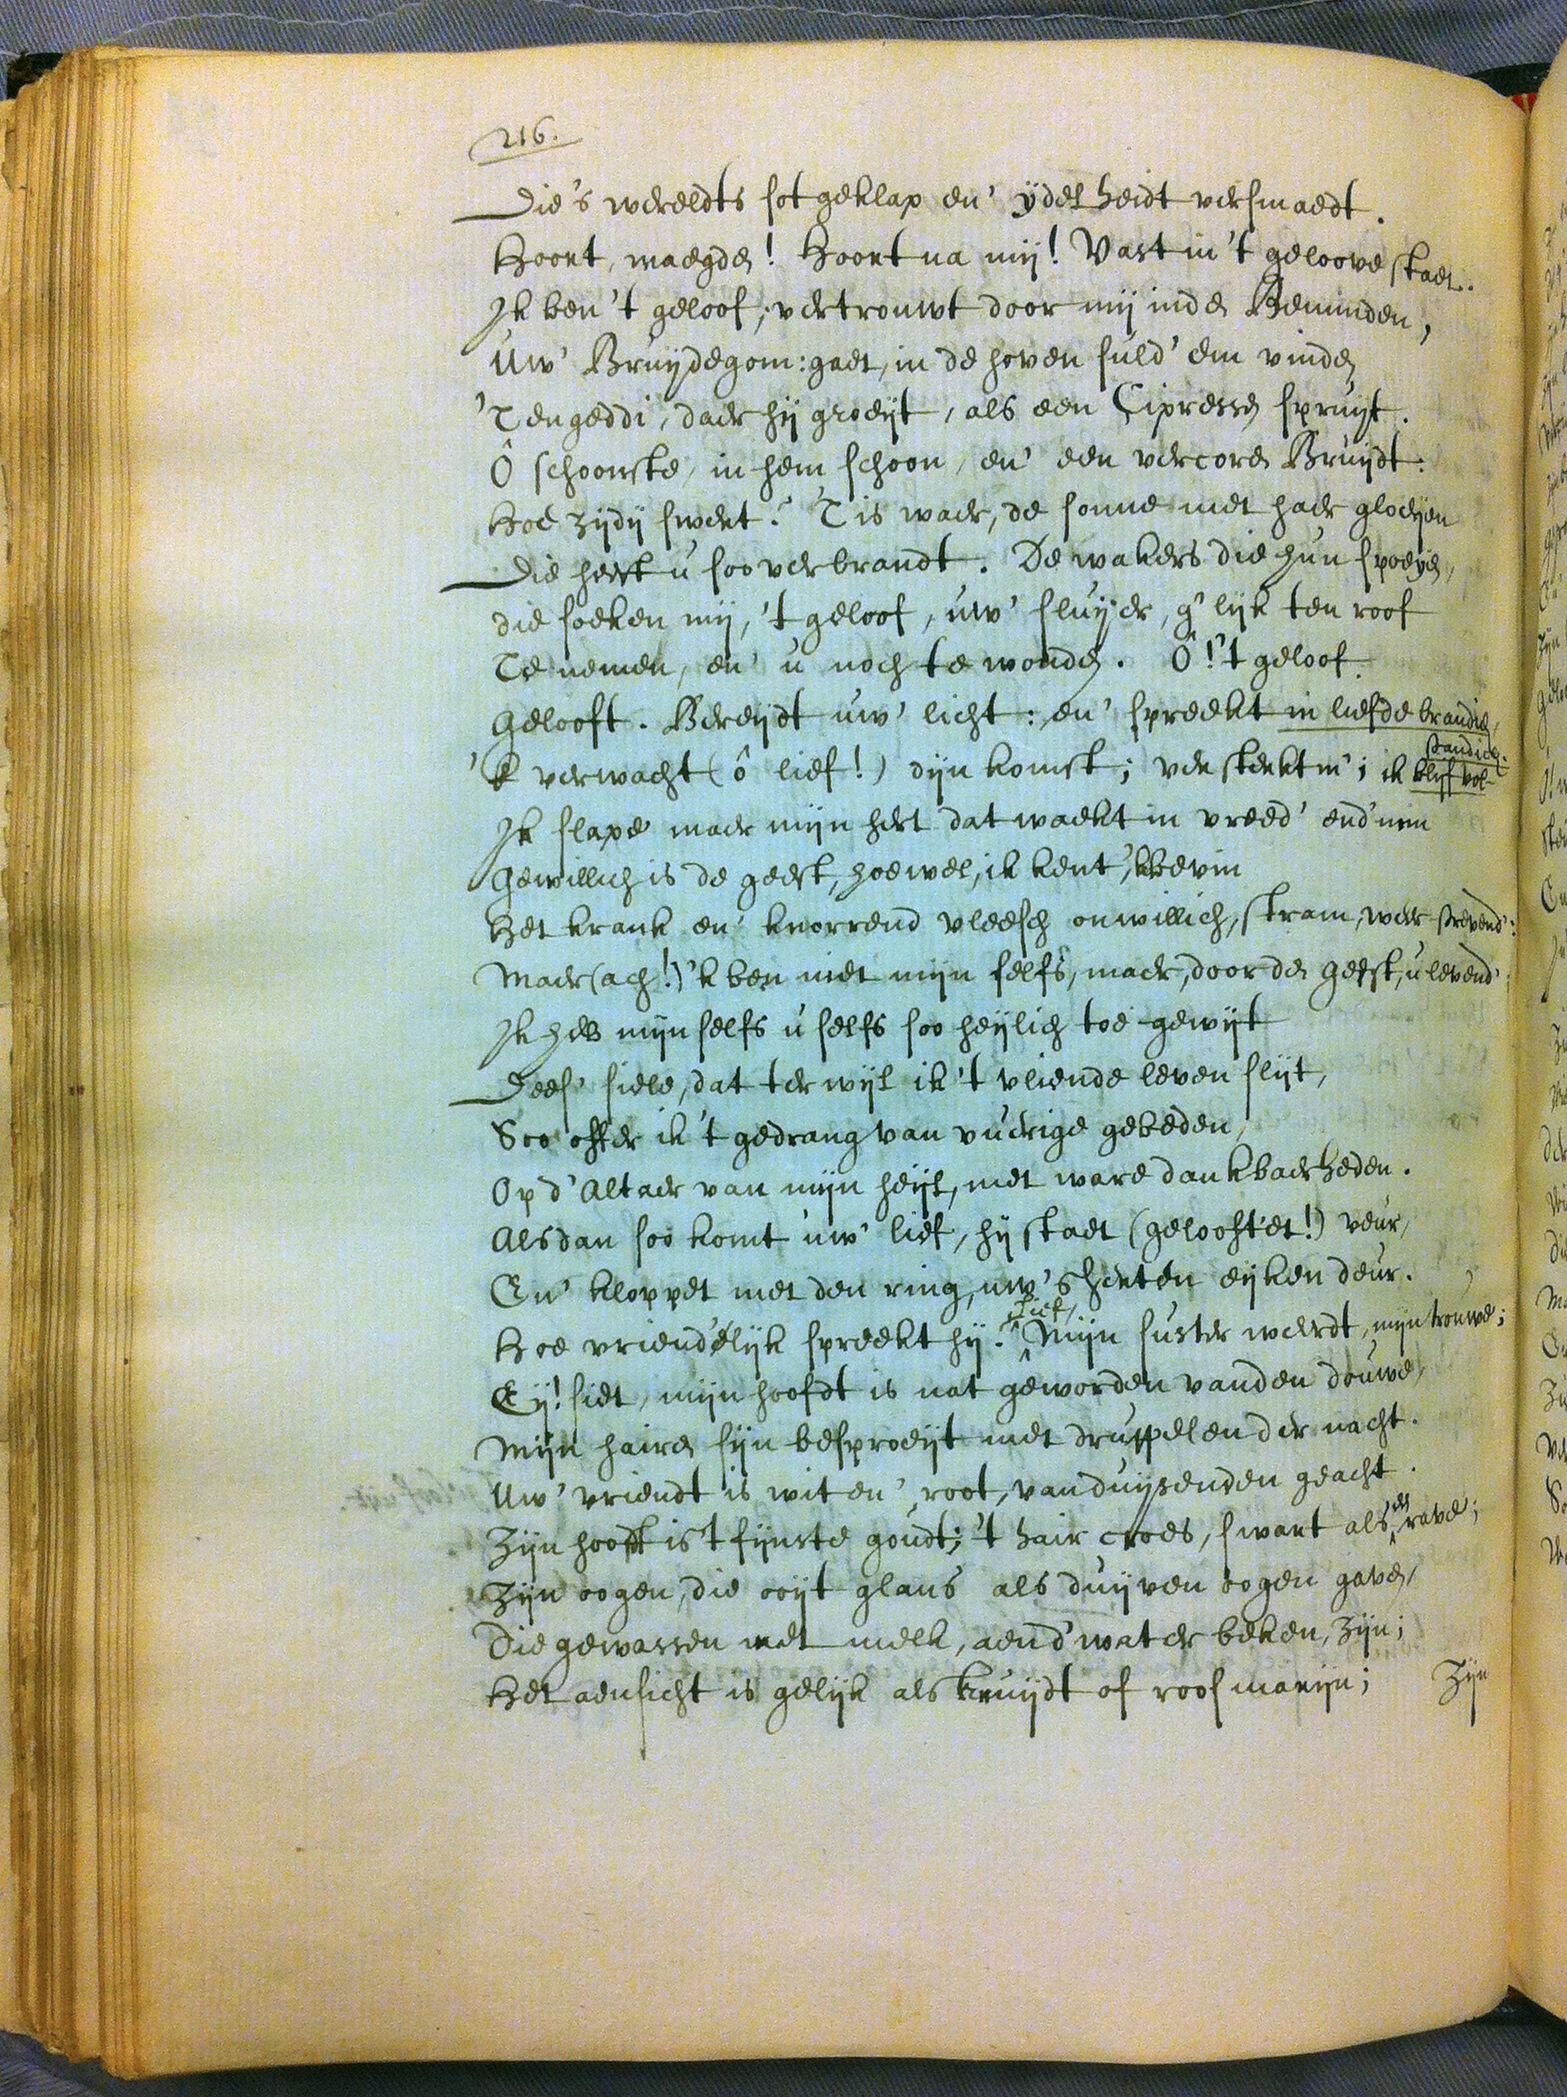 216.
Die's wereldts sot geklap en' ÿdelheidt versmaedt.
Hoort, maegden! Hoort na mij! Vast in't geloove staet.
Ik ben't geloof; vertrouwt door mij inden Beminden,
Uw' Bruijdegom: gaet, in de hoven suld' em vinden
'T engeddi, daer hij groeijt, als een Cipressen spruijt.
Ô schoonste, in hem schoon, en' een vercoren Bruijdt:
Hoe zijdij swert? 'T is waer, de sonne met haer gloeijen
Die heeft u soo verbrandt. De wakers die hun spoeijen,
die soeken mij, 't geloof, uw' sluijer, g'lijk ten roof
Te nemen, en' u noch te wonden. Ô! 't geloof
Gelooft. Bereijdt uw' licht: en' spreekt in liefde brandich,
'k verwacht (ô lief!) dijn komst; versterkt m'; ik blijf vol-
standich.
Ik slape maer mijn hert dat waekt in vreed' end' min
Gewillich is de geest, hoewel, ik kent, 'k bevin
Het krank en' knorrend vleesch onwillich, stram, weer strevend':
Maer (ach!) 'k ben niet mijn selfs, maer, door den geest, u levend'
Ik heb mijn selfs u selfs soo heijlich toe-gewijt
Dees' siele, dat terwijl ik 't vliende leven slijt,
Soo offer ik 't gedrang van vuerige gebeden,
Op d'Altaer van mijn heijl, met ware dankbaerheden.
Alsdan soo komt uw' lief, hij staet (gelooft'et!) veur,
En' kloppet met den ring, uw's herten eijken deur.
Hoe vriend'elijk spreekt hij. Lief, Mijn suster weerdt, mijn trouwe;
Eij! siet, mijn hoofdt is nat geworden vanden douwe,
Mijn hairen sijn besproeijt met druppelen der nacht.
Uw' vriendt is wit en' root, van duijsenden geacht.
Zijn hooft is 't fijnste goudt; 't hair croes, swart als een rave;
Zijn oogen, die ooijt glans als duijven oogen gaven,
Die gewassen met melk, aend' water beken, zijn;
Het aensicht is gelijk als kruijdt of roosmarijn;
Zijn